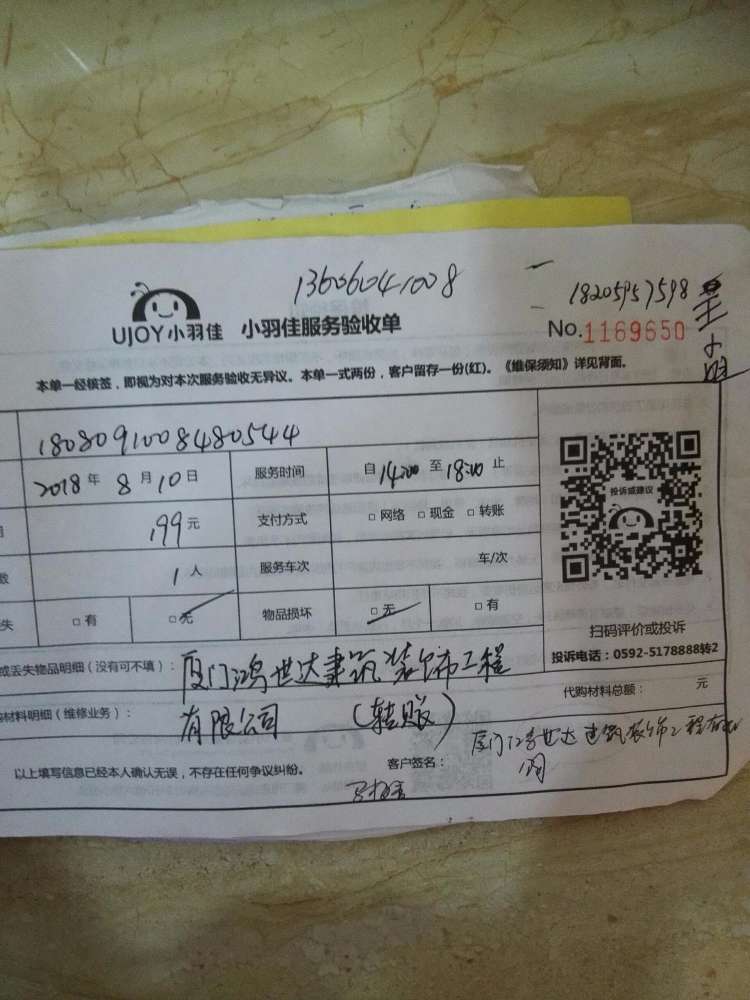 13606041008
18205957598
UJOY小羽佳 小羽佳服务验收单
No.1169650
本单一经核签，即视为对本次服务验收无异议。本单一式两份，客户留存一份(红)。《维保须知》详见背面。
1808091008480544
2018年8月10日 服务时间 自14:00至18:00止
199元 支付方式 □网络 □现金 □转账
数 1人 服务车次 车/次
失 □有 □无 物品损坏 □无 □有
投诉或建议
扫码评价或投诉
投诉电话：0592-5178888转2
或丢失物品明细（没有可不填）： 厦门鸿世达建筑装饰工程
材料明细（维修业务）： 有限公司 （转账） 代购材料总额： 元
以上填写信息已经本人确认无误，不存在任何争议纠纷。 客户签名： 厦门鸿世达建筑装饰工程有限公司